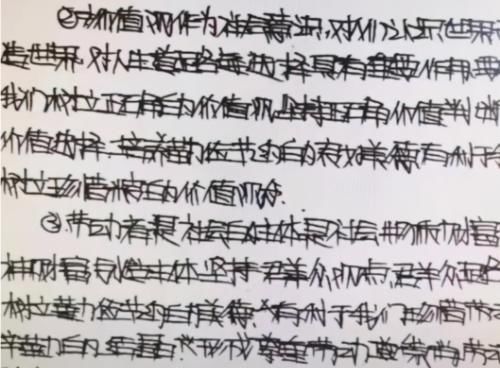 ②价值观作为社会意识,对人们认识世界
造世界,对人生道路的选择具有重要作用,要
我们树立正确的价值观,坚持正确价值判断
价值选择.培养勤俭节约的良好美德有利于
树立珍惜粮食的价值观.
③劳动者是社会的主体是社会物质财富
神财富创造主体.坚持群众观点,群众路
树立勤俭节约的美德.有利于我们珍惜劳
辛勤力的 形成尊重劳动尊崇劳